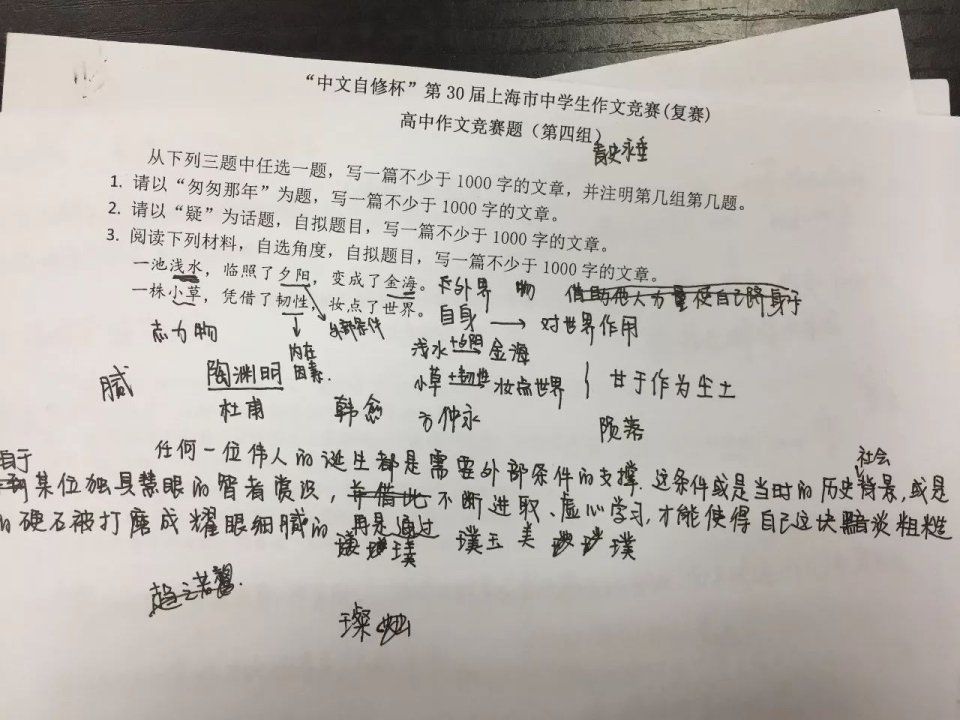 “中文自修杯”第 30 届上海市中学生作文竞赛(复赛)
高中作文竞赛题（第四组）
青史永垂
从下列三题中任选一题，写一篇不少于 1000 字的文章，并注明第几组第几题。
1. 请以“匆匆那年”为题，写一篇不少于 1000 字的文章。
2. 请以“疑”为话题，自拟题目，写一篇不少于 1000 字的文章。
3. 阅读下列材料，自选角度，自拟题目，写一篇不少于 1000 字的文章。
一池浅水，临照了夕阳，变成了金海。
一株小草，凭借了韧性，妆点了世界。
外界 物 借助他人力量使自己跻身于
自身 → 对世界作用
志 力 物
外部条件
内在因素.
浅水 +夕阳 金海
小草 +韧性 妆点世界 甘于作为尘土
腻
陶渊明
杜甫 韩愈 方仲永 陨落
任何一位伟人的诞生都是需要外部条件的支撑. 这条件或是当时的历史背景, 或是
社会
自于
某位独具慧眼的智者赏识, 并借此不断进取、虚心学习, 才能使得自己这块黯淡粗糙
的硬石被打磨成耀眼细腻的
再是通过
璞 璞玉 美 璞
璨